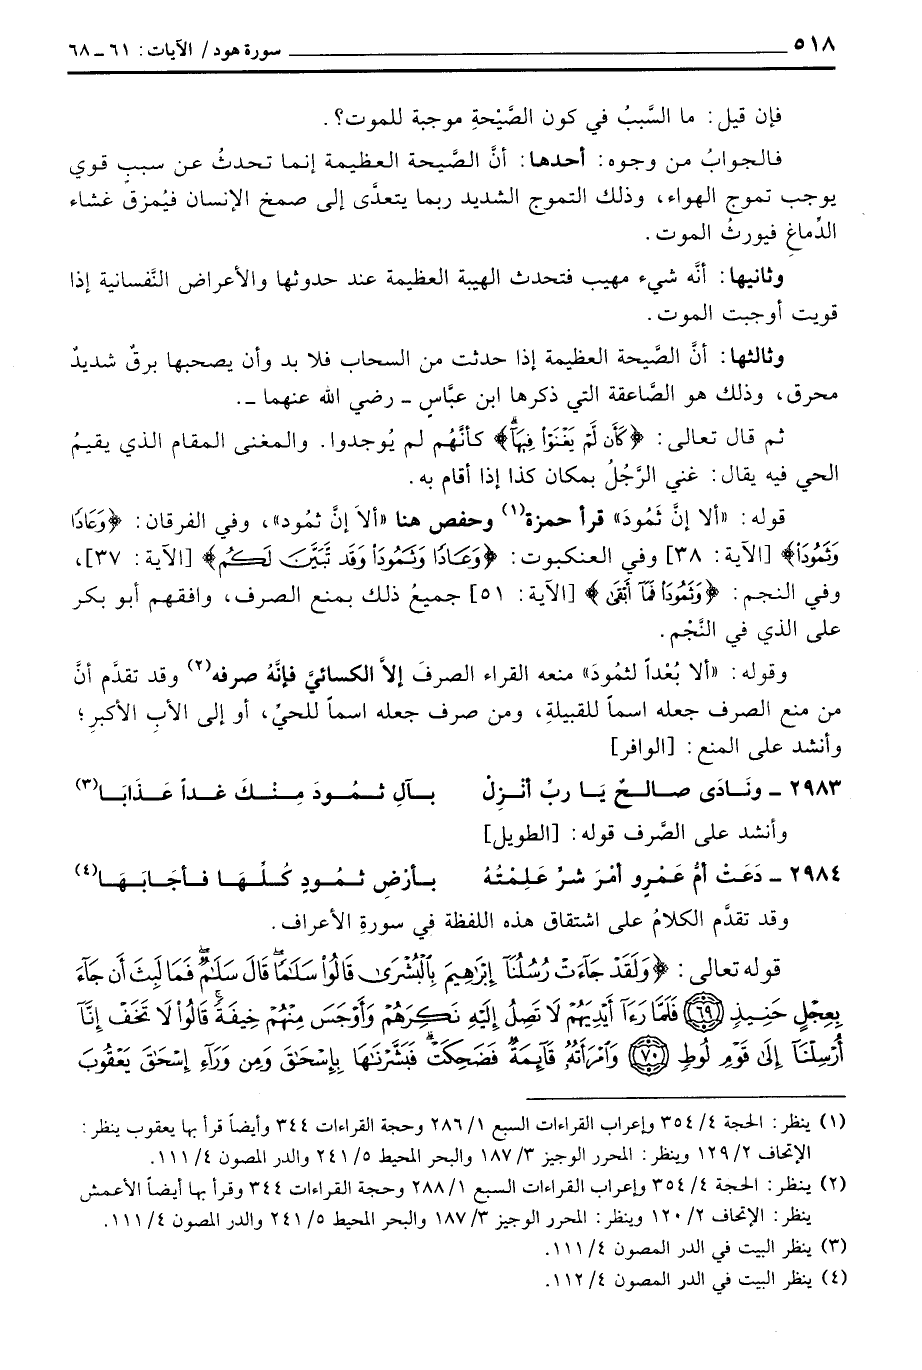 ٥١٨ سورة هود/ الآيات: ٦١ - ٦٨
فإن قيل: ما السَّببُ في كون الصَّيْحةِ موجبة للموت؟.
فالجوابُ من وجوه: أحدها: أنَّ الصَّيحة العظيمة إنما تحدثُ عن سببٍ قوي
يوجب تموج الهواء، وذلك التموج الشديد ربما يتعدَّى إلى صمخ الإنسان فيُمزقُ غشاء
الدِّماغِ فيورثُ الموت.
وثانيها: أنَّه شيء مهيب فتحدث الهيبة العظيمة عند حدوثها والأعراض النَّفسانية إذا
قويت أوجبت الموت.
وثالثها: أنَّ الصَّيحة العظيمة إذا حدثت من السحاب فلا بد وأن يصحبها برقٌ شديدٌ
محرق، وذلك هو الصَّاعقة التي ذكرها ابن عبَّاسٍ - رضي الله عنهما -.
ثم قال تعالى: ﴿كَأَن لَّمْ يَغْنَوْا۟ فِيهَآ﴾ كأنَّهُم لم يُوجدوا. والمغنى المقام الذي يقيمُ
الحي فيه يقال: غني الرَّجُلُ بمكان كذا إذا أقام به.
قوله: «ألا إنَّ ثَمُودَ» قرأ حمزة(١) وحفص هنا «ألاَ إنَّ ثمُود»، وفي الفرقان: ﴿وَعَادًا
وَثَمُودَا۟﴾ [الآية: ٣٨] وفي العنكبوت: ﴿وَعَادًا وَثَمُودَا۟ وَقَد تَّبَيَّنَ لَكُم﴾ [الآية: ٣٧]،
وفي النجم: ﴿وَثَمُودَا۟ فَمَآ أَبْقَىٰ﴾ [الآية: ٥١] جميعُ ذلك بمنع الصرف، وافقهم أبو بكر
على الذي في النَّجْم.
وقوله: «ألا بُعْداً لثمُودَ» منعه القراء الصرفَ إلاَّ الكسائيَّ فإنَّهُ صرفه(٢) وقد تقدَّم أنَّ
من منع الصرف جعله اسماً للقبيلةِ، ومن صرف جعله اسماً للحيِّ، أو إلى الأبِ الأكبرِ؛
وأنشد على المنع: [الوافر]
٢٩٨٣ - ونَادَى صالحٌ يَا ربِّ أنْزِلْ بآلِ ثمُودَ مِنْكَ غداً عَذَابَا(٣)
وأنشد على الصَّرف قوله: [الطويل]
٢٩٨٤ - دَعَتْ أمُّ عَمْرِو أمْرَ شرٍّ عَلِمْتُهُ بأرْضِ ثمُودٍ كُلِّهَا فأجَابَهَا(٤)
وقد تقدَّم الكلامُ على اشتقاق هذه اللفظة في سورةِ الأعراف.
قوله تعالى: ﴿وَلَقَدْ جَآءَتْ رُسُلُنَآ إِبْرَٰهِيمَ بِٱلْبُشْرَىٰ قَالُوا۟ سَلَٰمًا قَالَ سَلَٰمٌ فَمَا لَبِثَ أَن جَآءَ
بِعِجْلٍ حَنِيذٍ ﴿٦٩﴾ فَلَمَّا رَءَآ أَيْدِيَهُمْ لَا تَصِلُ إِلَيْهِ نَكِرَهُمْ وَأَوْجَسَ مِنْهُمْ خِيفَةً قَالُوا۟ لَا تَخَفْ إِنَّآ
أُرْسِلْنَآ إِلَىٰ قَوْمِ لُوطٍ ﴿٧٠﴾ وَٱمْرَأَتُهُۥ قَآئِمَةٌ فَضَحِكَتْ فَبَشَّرْنَٰهَا بِإِسْحَٰقَ وَمِن وَرَآءِ إِسْحَٰقَ يَعْقُوبَ
(١) ينظر: الحجة ٣٥٤/٤ وإعراب القراءات السبع ٢٨٦/١ وحجة القراءات ٣٤٤ وأيضاً قرأ بها يعقوب ينظر:
الإتحاف ١٢٩/٢ وينظر: المحرر الوجيز ١٨٧/٣ والبحر المحيط ٢٤١/٥ والدر المصون ١١١/٤.
(٢) ينظر: الحجة ٣٥٤/٤ وإعراب القراءات السبع ٢٨٨/١ وحجة القراءات ٣٤٤ وقرأ بها أيضاً الأعمش
ينظر: الإتحاف ١٢٠/٢ وينظر: المحرر الوجيز ١٨٧/٣ والبحر المحيط ٢٤١/٥ والدر المصون ١١١/٤.
(٣) ينظر البيت في الدر المصون ١١١/٤.
(٤) ينظر البيت في الدر المصون ١١٢/٤.